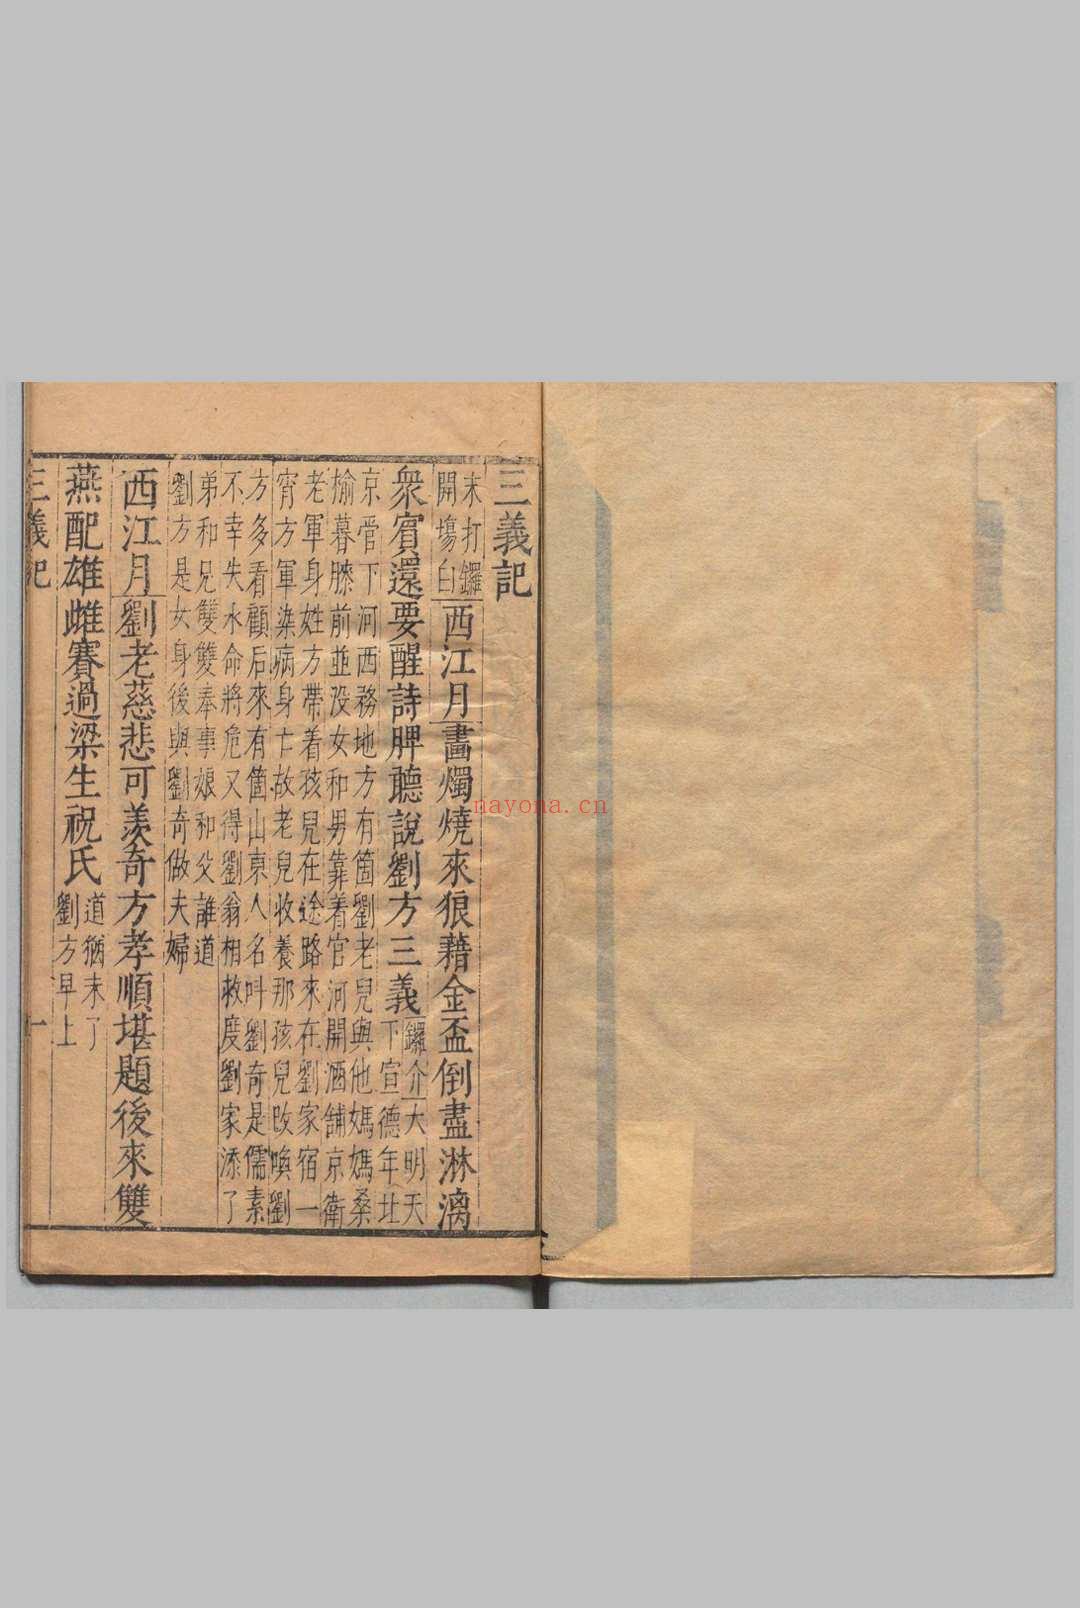 三義記
末打鑼
開塲白
西江月
畵燭燒來狼藉金盃倒盡淋漓
衆賓還要醒詩脾聽說劉方三義
鑼介
大明天
下宣德年
京管下河西務地方有箇劉老兒與他媽媽桑
榆暮膝前並没女和男靠着官河開酒舖京衛
老軍身姓方帶着孩兒在途路來在劉家宿一
宵方軍染病身亡故老兒收養那孩兒改喚劉
方多看顧后來有箇山東人名叫劉奇是儒素
不幸失水命將危又得劉翁相救度劉家添了
弟和兄雙雙奉事娘和父誰道
劉方是女身後與劉奇做夫婦
西江月
劉老慈悲可羨奇方孝順堪題後來雙
燕配雄雌賽過梁生祝氏
道猶未了
劉方早上
三義記
一
nayona.cn